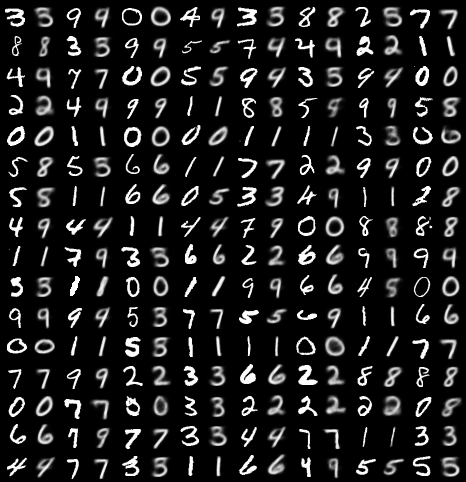 3 3 9 9 0 0 4 9 3 3 8 8 2 5 7 7
8 8 3 3 9 9 5 5 7 4 4 9 2 2 1 1
4 9 7 7 0 0 5 5 9 4 3 5 9 4 0 0
2 2 4 9 9 9 1 1 8 8 5 9 9 5 8
0 0 1 1 0 0 0 0 1 1 1 1 3 3 0 6
5 8 5 5 6 6 1 1 7 7 2 2 9 9 0 0
5 5 1 1 6 6 0 5 3 3 4 9 1 1 2 8
4 9 4 4 1 1 4 4 7 9 0 0 8 8 8 8
1 1 7 9 3 3 6 6 2 2 6 6 9 9 9 9
3 3 1 1 0 0 1 1 9 9 6 6 4 5 0 0
9 9 9 9 5 3 7 7 5 5 6 9 1 1 6 6
0 0 1 1 5 5 1 1 1 1 0 0 1 1 7 7
7 7 9 9 2 2 3 3 6 6 2 2 8 8 8 8
0 0 7 7 0 0 3 3 2 2 2 2 2 2 0 8
6 6 7 9 7 7 3 3 4 4 7 7 1 1 3 3
4 4 7 7 3 3 1 1 6 6 4 9 5 5 5 5